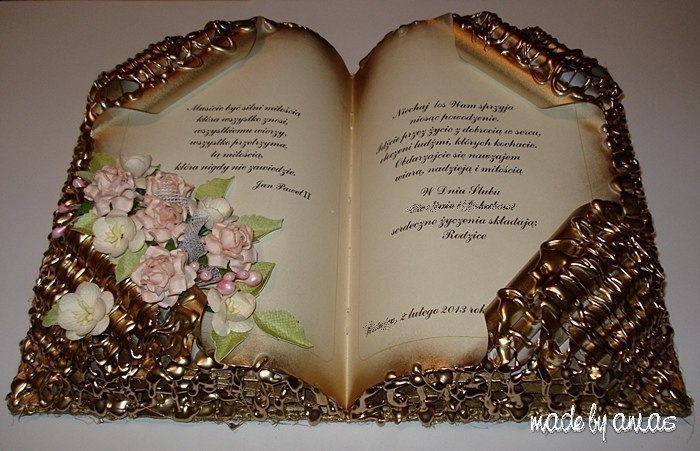 Musicie być silni miłością
która wszystko znosi,
wszystkiemu wierzy,
wszystko przetrzyma,
tą miłością,
która nigdy nie zawiedzie.
Jan Paweł II
Niechaj los Wam sprzyja
niosąc powodzenie.
Idźcie przez życie z dobrocią w sercu,
otoczeni ludźmi, których kochacie.
Obdarzajcie się nawzajem
wiarą, nadzieją i miłością
W Dniu Ślubu
serdeczne życzenia składają:
Rodzice
2 lutego 2013 rok
made by anias